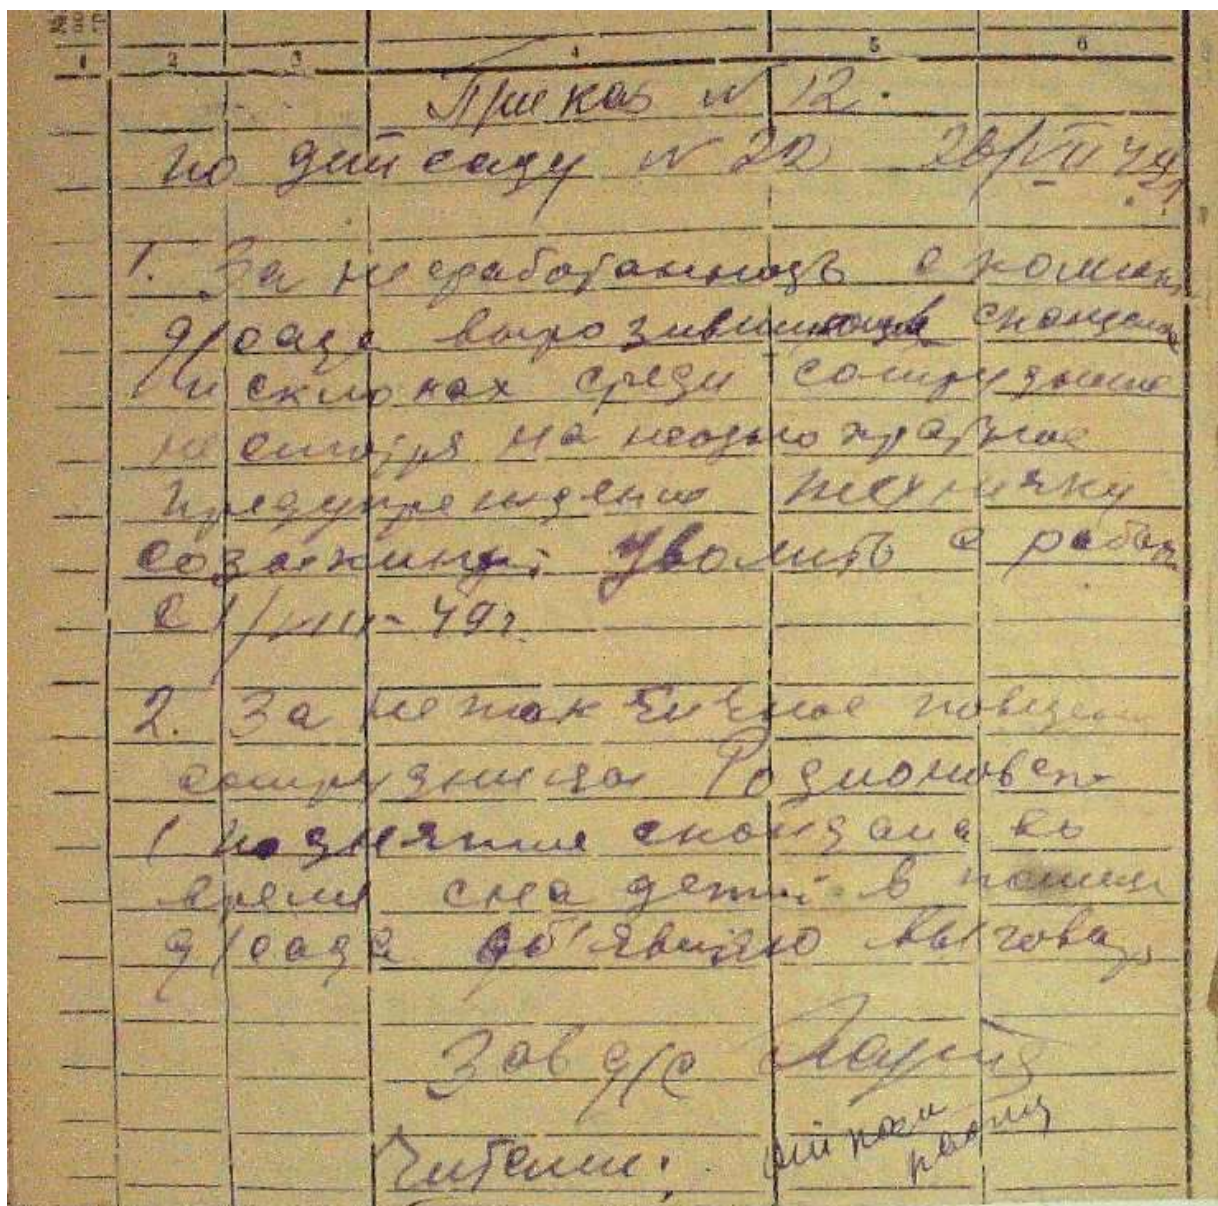 1 2 3 4 5 6
Приказ N 12.
по дет саду N 20 28/VII 49
1. За несработанность с колл
д/сада выразившиеся скандала
и склоках среди сотрудни
несмотря на неоднократное
предупреждение техничку
уволить с работ
с 1/VIII - 49 г.
2. За нетактичное поведени
сотрудницы Родионовой
поднятие скандала во
время сна детей в
д/сада об'являю выговор
Зав д/с
Читали: